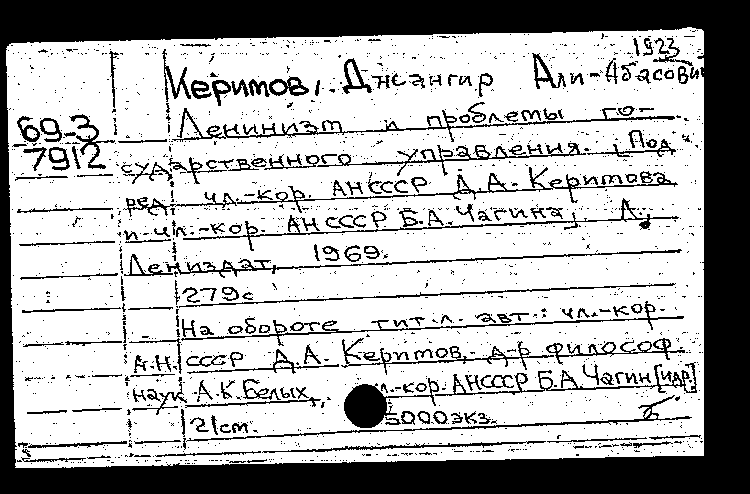 1923
Керимов, Джангир Али-Абасович
69-3
7912
Ленинизм и проблемы го-
сударственного управления. [Под
ред. чл.-кор. АН СССР Д.А. Керимова
и чл.-кор. АН СССР Б.А. Чагина] Л.,
Лениздат, 1969.
279с
На обороте тит.л. авт.: чл.-кор.
А.Н. СССР Д.А. Керимов, д-р философ.
наук А.К. Белых, л.-кор. АН СССР Б.А. Чагин [и др.]
21cm. 5000 экз.